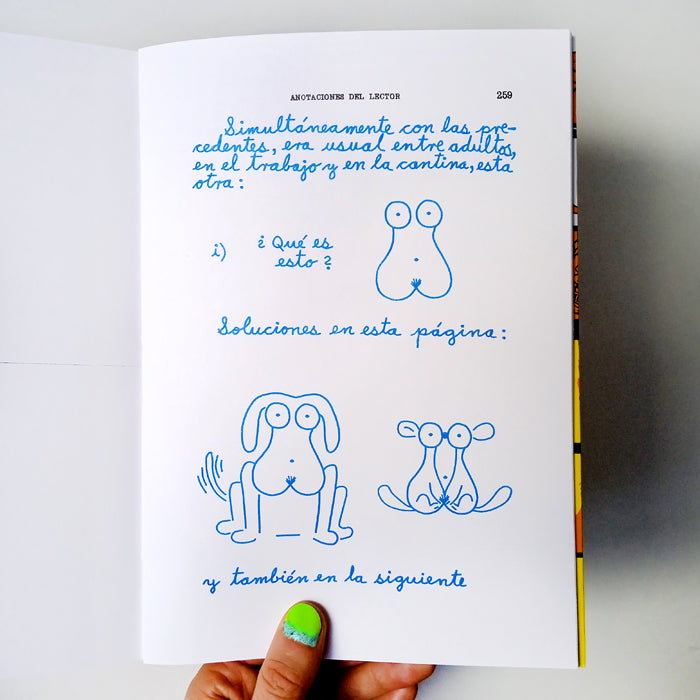 ANOTACIONES DEL LECTOR 259
Simultáneamente con las pre-
cedentes, era usual entre adultos,
en el trabajo y en la cantina, esta
otra:
i) ¿Qué es
esto?
Soluciones en esta página:
y también en la siguiente